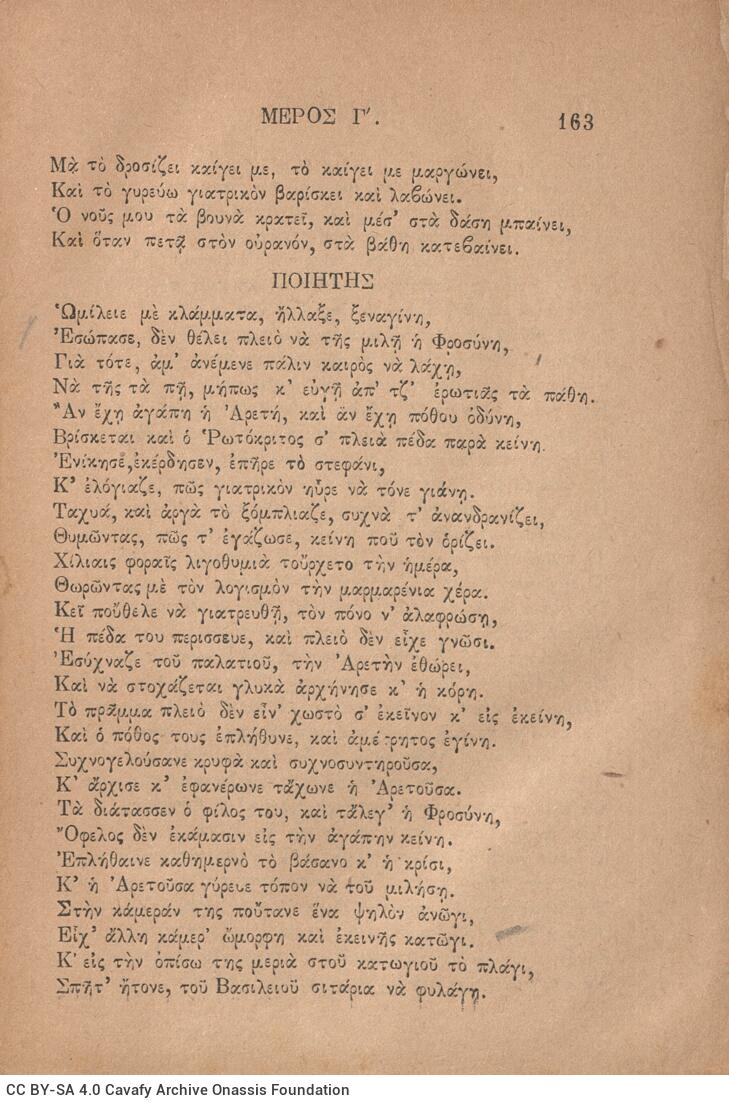 ΜΕΡΟΣ Γ′.
163
Μὰ τὸ δροσίζει καίγει με, τὸ καίγει με μαργώνει,
Καὶ τὸ γυρεύω γιατρικὸν βαρίσκει καὶ λαβώνει.
Ὁ νοῦς μου τὰ βουνὰ κρατεῖ, καὶ μέσ' στὰ δάση μπαίνει,
Καὶ ὅταν πετᾷ στὸν οὐρανόν, στὰ βάθη κατεβαίνει.
ΠΟΙΗΤΗΣ
Ὡμίλειε μὲ κλάμματα, ἤλλαξε, ξεναγίνη,
Ἐσώπασε, δὲν θέλει πλειὸ νὰ τῆς μιλῇ ἡ Φροσύνη,
Γιὰ τότε, ἀμ' ἀνέμενε πάλιν καιρὸς νὰ λάχῃ,
Νὰ τῆς τὰ πῇ, μήπως κ' εὐγῇ ἀπ' τζ' ἐρωτιᾶς τὰ πάθη.
Ἂν ἔχῃ ἀγάπη ἡ Ἀρετή, καὶ ἂν ἔχῃ πόθου ὀδύνη,
Βρίσκεται καὶ ὁ Ῥωτόκριτος σ' πλειὰ πέδα παρὰ κείνη.
Ἐνίκησε, ἐκέρδησεν, ἐπῆρε τὸ στεφάνι,
Κ' ἐλόγιαζε, πῶς γιατρικὸν ηὗρε νὰ τόνε γιάνῃ.
Ταχυά, καὶ ἀργὰ τὸ ξόμπλιαζε, συχνὰ τ' ἀνανδρανίζει,
Θυμῶντας, πῶς τ' ἐγάζωσε, κείνη ποῦ τὸν ὁρίζει.
Χίλιαις φοραῖς λιγοθυμιὰ τοὔρχετο τὴν ἡμέρα,
Θωρῶντας μὲ τὸν λογισμὸν τὴν μαρμαρένια χέρα.
Κεῖ ποὖθελε νὰ γιατρευθῇ, τὸν πόνο ν' ἀλαφρώσῃ,
Ἡ πέδα του περισσευε, καὶ πλειὸ δὲν εἶχε γνῶσι.
Ἐσύχναζε τοῦ παλατιοῦ, τὴν Ἀρετὴν ἐθώρει,
Καὶ νὰ στοχάζεται γλυκὰ ἀρχήνησε κ' ἡ κόρη.
Τὸ πρᾶμμα πλειὸ δὲν εἶν' χωστὸ σ' ἐκεῖνον κ' εἰς ἐκείνη,
Καὶ ὁ πόθος τους ἐπλήθυνε, καὶ ἀμέτρητος ἐγίνη.
Συχνογελούσανε κρυφὰ καὶ συχνοσυντηροῦσα,
Κ' ἄρχισε κ' ἐφανέρωνε τἄχωνε ἡ Ἀρετοῦσα.
Τὰ διάτασσεν ὁ φίλος του, καὶ τἄλεγ' ἡ Φροσύνη,
Ὄφελος δὲν ἐκάμασιν εἰς τὴν ἀγάπην κείνη.
Ἐπλήθαινε καθημερνὸ τὸ βάσανο κ' ἡ κρίσι,
Κ' ἡ Ἀρετοῦσα γύρευε τόπον νὰ τοῦ μιλήσῃ.
Στὴν κάμεράν της ποὔτανε ἕνα ψηλὸν ἀνῶγι,
Εἶχ' ἄλλη κάμερ' ὤμορφη καὶ ἐκεινῆς κατῶγι.
Κ' εἰς τὴν ὀπίσω της μεριὰ στοῦ κατωγιοῦ τὸ πλάγι,
Σπῆτ' ἤτονε, τοῦ Βασιλειοῦ σιτάρια νὰ φυλάγῃ.
CC BY-SA 4.0 Cavafy Archive Onassis Foundation